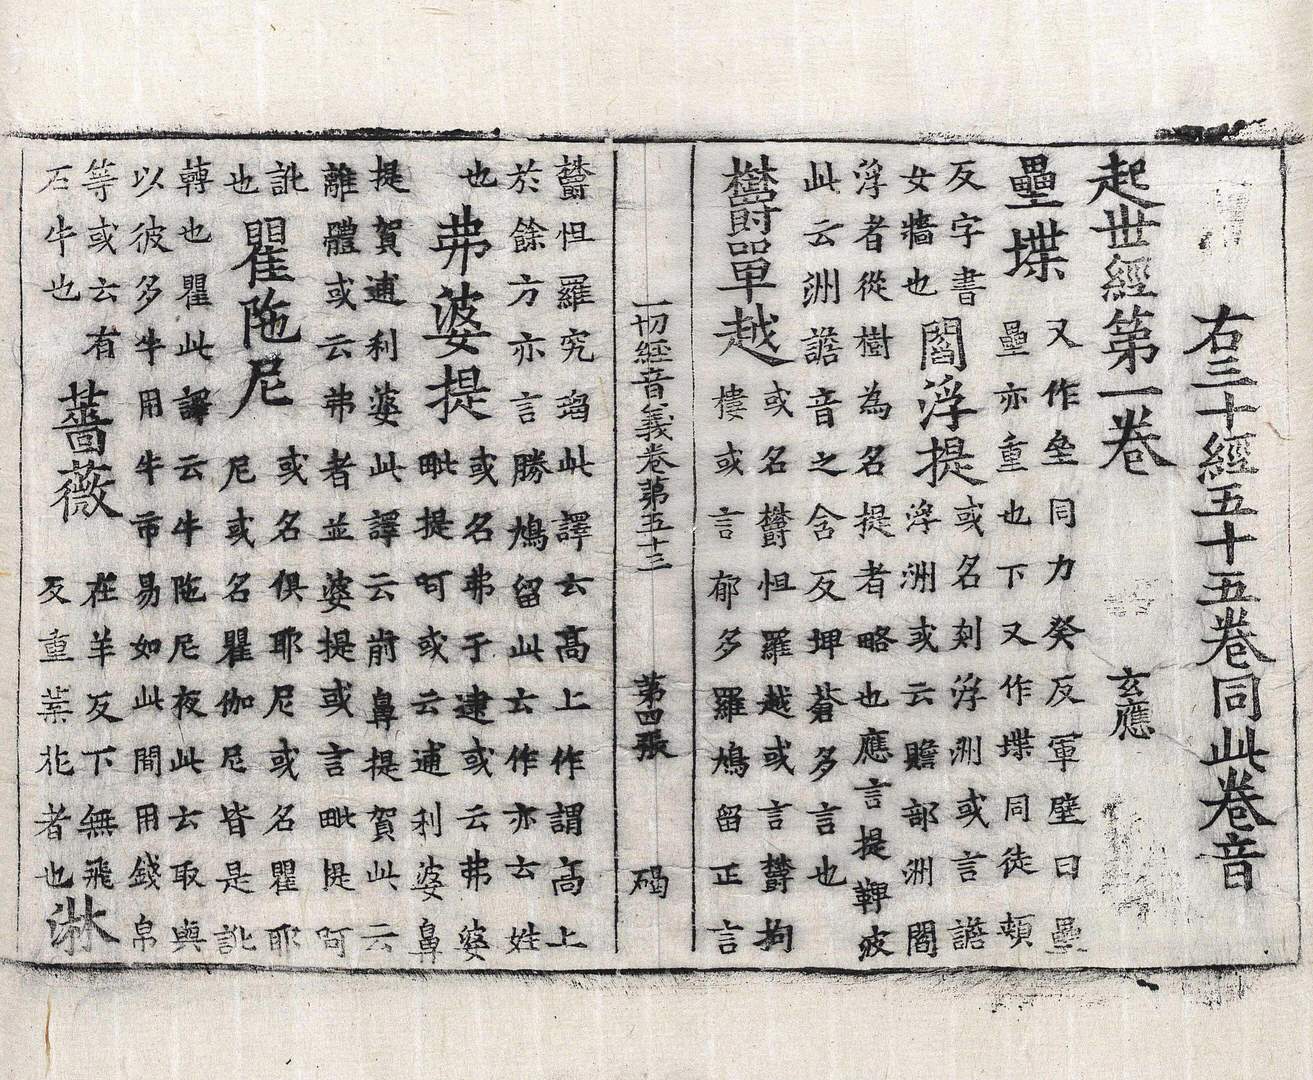 右三十經五十五卷同此卷音
起世經第一卷 玄應
壘堞
又作垒同力癸反軍壁曰壘
壘亦重也下又作堞同徒頰
反字書
女牆也
閻浮提
或名剡浮洲或言譫
浮洲或云贍部洲閻
浮者從樹為名提者略也應言提鞞波
此云洲譫音之含反埤蒼多言也
欝單越
或名欝怛羅越或言欝拘
樓或言郁多羅鳩留正言
一切經音義卷第五十三 第四張 碣
欝怛羅究瑠此譯云高上作謂高上
於餘方亦言勝鳩留此云作亦云姓
也
弗婆提
或名弗于逮或云弗婆
毗提呵或云逋利婆鼻
提賀逋利婆此譯云前鼻提賀此云
離體或云弗者並婆提或言毗提呵
訛
也
瞿陁尼
或名俱耶尼或名瞿耶
尼或名瞿伽尼皆是訛
轉也瞿此譯云牛陁尼夜此云取與
以彼多牛用牛市易如此間用錢帛
等或云有
石牛也
薔薇
在羊反下無飛
反重葉花者也
淋